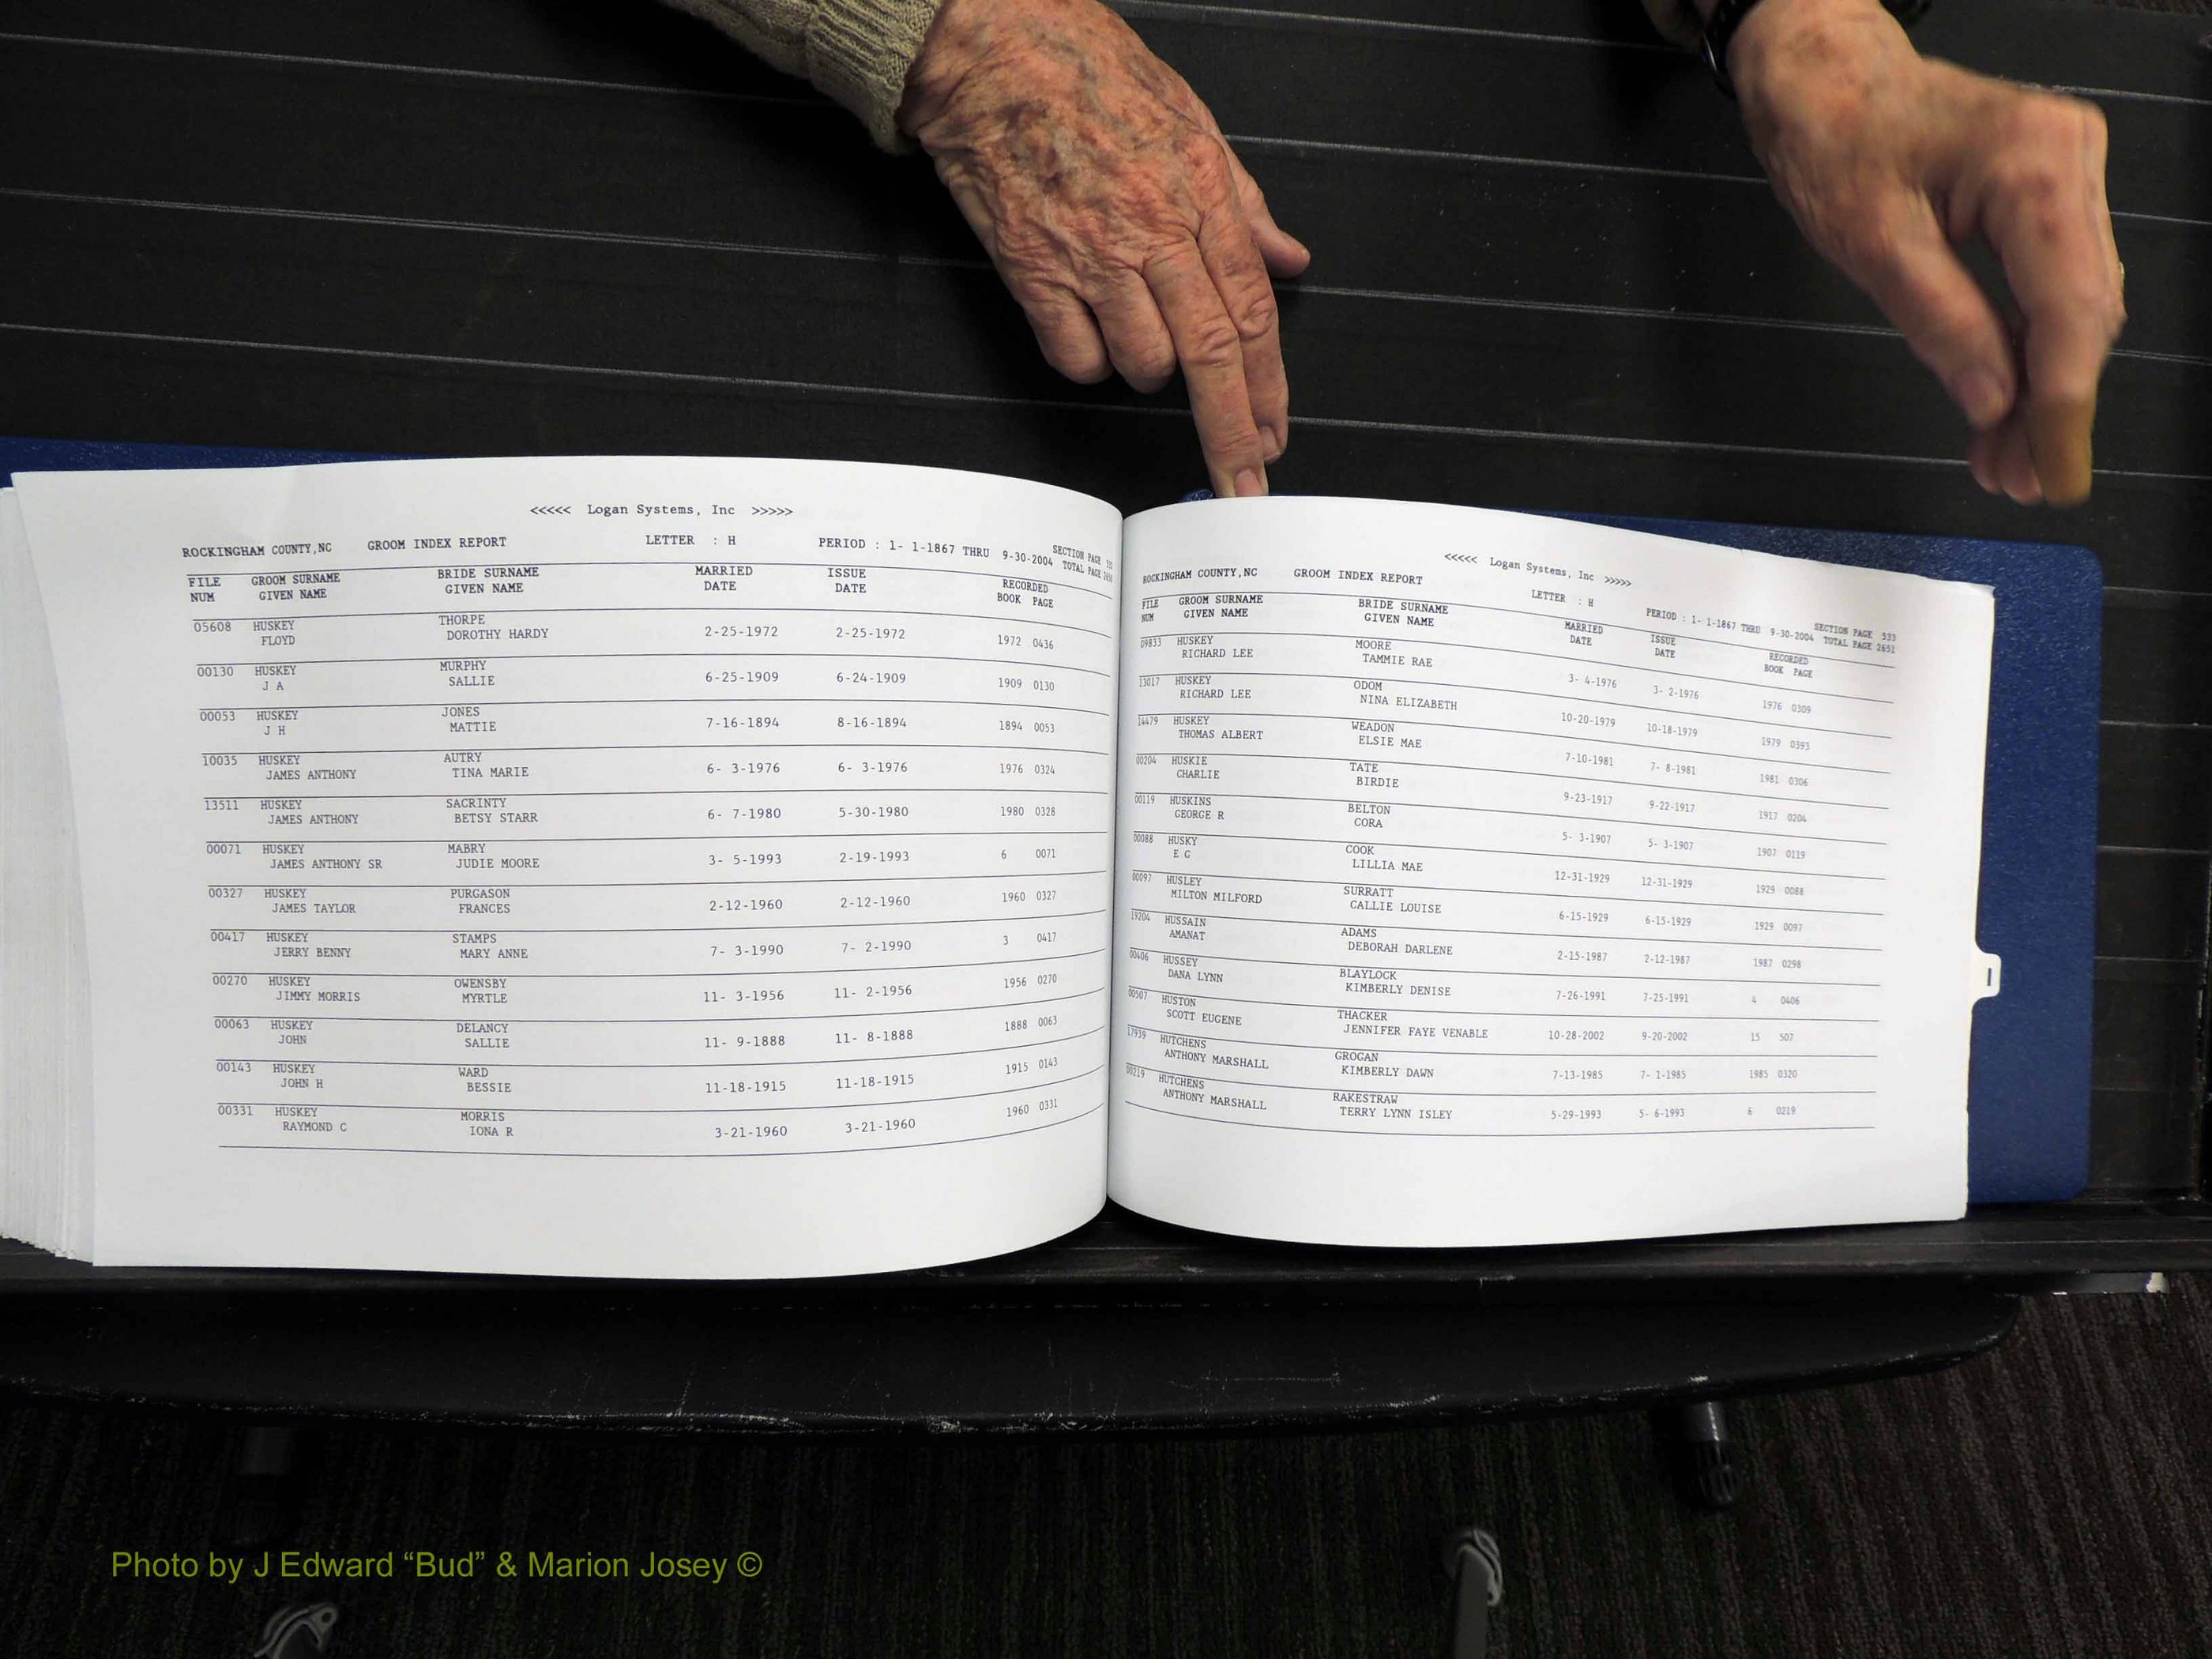 <<<<< Logan Systems, Inc >>>>>
ROCKINGHAM COUNTY,NC GROOM INDEX REPORT LETTER : H PERIOD : 1- 1-1867 THRU 9-30-2004 SECTION PAGE
TOTAL PAGE
FILE GROOM SURNAME BRIDE SURNAME MARRIED ISSUE RECORDED
NUM GIVEN NAME GIVEN NAME DATE DATE BOOK PAGE
05608 HUSKEY THORPE
FLOYD DOROTHY HARDY 2-25-1972 2-25-1972 1972 0436
00130 HUSKEY MURPHY
J A SALLIE 6-25-1909 6-24-1909 1909 0130
00053 HUSKEY JONES
J H MATTIE 7-16-1894 8-16-1894 1894 0053
10035 HUSKEY AUTRY
JAMES ANTHONY TINA MARIE 6- 3-1976 6- 3-1976 1976 0324
13511 HUSKEY SACRINTY
JAMES ANTHONY BETSY STARR 6- 7-1980 5-30-1980 1980 0328
00071 HUSKEY MABRY
JAMES ANTHONY SR JUDIE MOORE 3- 5-1993 2-19-1993 6 0071
00327 HUSKEY PURGASON
JAMES TAYLOR FRANCES 2-12-1960 2-12-1960 1960 0327
00417 HUSKEY STAMPS
JERRY BENNY MARY ANNE 7- 3-1990 7- 2-1990 3 0417
00270 HUSKEY OWENSBY
JIMMY MORRIS MYRTLE 11- 3-1956 11- 2-1956 1956 0270
00063 HUSKEY DELANCY
JOHN SALLIE 11- 9-1888 11- 8-1888 1888 0063
00143 HUSKEY WARD
JOHN H BESSIE 11-18-1915 11-18-1915 1915 0143
00331 HUSKEY MORRIS
RAYMOND C IONA R 3-21-1960 3-21-1960 1960 0331
<<<<< Logan Systems, Inc >>>>>
ROCKINGHAM COUNTY,NC GROOM INDEX REPORT LETTER : H PERIOD : 1- 1-1867 THRU 9-30-2004 SECTION PAGE 533
TOTAL PAGE 2651
FILE GROOM SURNAME BRIDE SURNAME MARRIED ISSUE RECORDED
NUM GIVEN NAME GIVEN NAME DATE DATE BOOK PAGE
09833 HUSKEY MOORE
RICHARD LEE TAMMIE RAE 3- 4-1976 3- 2-1976 1976 0309
13017 HUSKEY ODOM
RICHARD LEE NINA ELIZABETH 10-20-1979 10-18-1979 1979 0393
14479 HUSKEY WEADON
THOMAS ALBERT ELSIE MAE 7-10-1981 7- 8-1981 1981 0306
00204 HUSKIE TATE
CHARLIE BIRDIE 9-23-1917 9-22-1917 1917 0204
00119 HUSKINS BELTON
GEORGE R CORA 5- 3-1907 5- 3-1907 1907 0119
00088 HUSKY COOK
E G LILLIA MAE 12-31-1929 12-31-1929 1929 0088
00097 HUSLEY SURRATT
MILTON MILFORD CALLIE LOUISE 6-15-1929 6-15-1929 1929 0097
19204 HUSSAIN ADAMS
AMANAT DEBORAH DARLENE 2-15-1987 2-12-1987 1987 0298
00406 HUSSEY BLAYLOCK
DANA LYNN KIMBERLY DENISE 7-26-1991 7-25-1991 4 0406
00507 HUSTON THACKER
SCOTT EUGENE JENNIFER FAYE VENABLE 10-28-2002 9-20-2002 15 507
17939 HUTCHENS GROGAN
ANTHONY MARSHALL KIMBERLY DAWN 7-13-1985 7- 1-1985 1985 0320
00219 HUTCHENS RAKESTRAW
ANTHONY MARSHALL TERRY LYNN ISLEY 5-29-1993 5- 6-1993 6 0219
I
Photo by J Edward “Bud” & Marion Josey ©